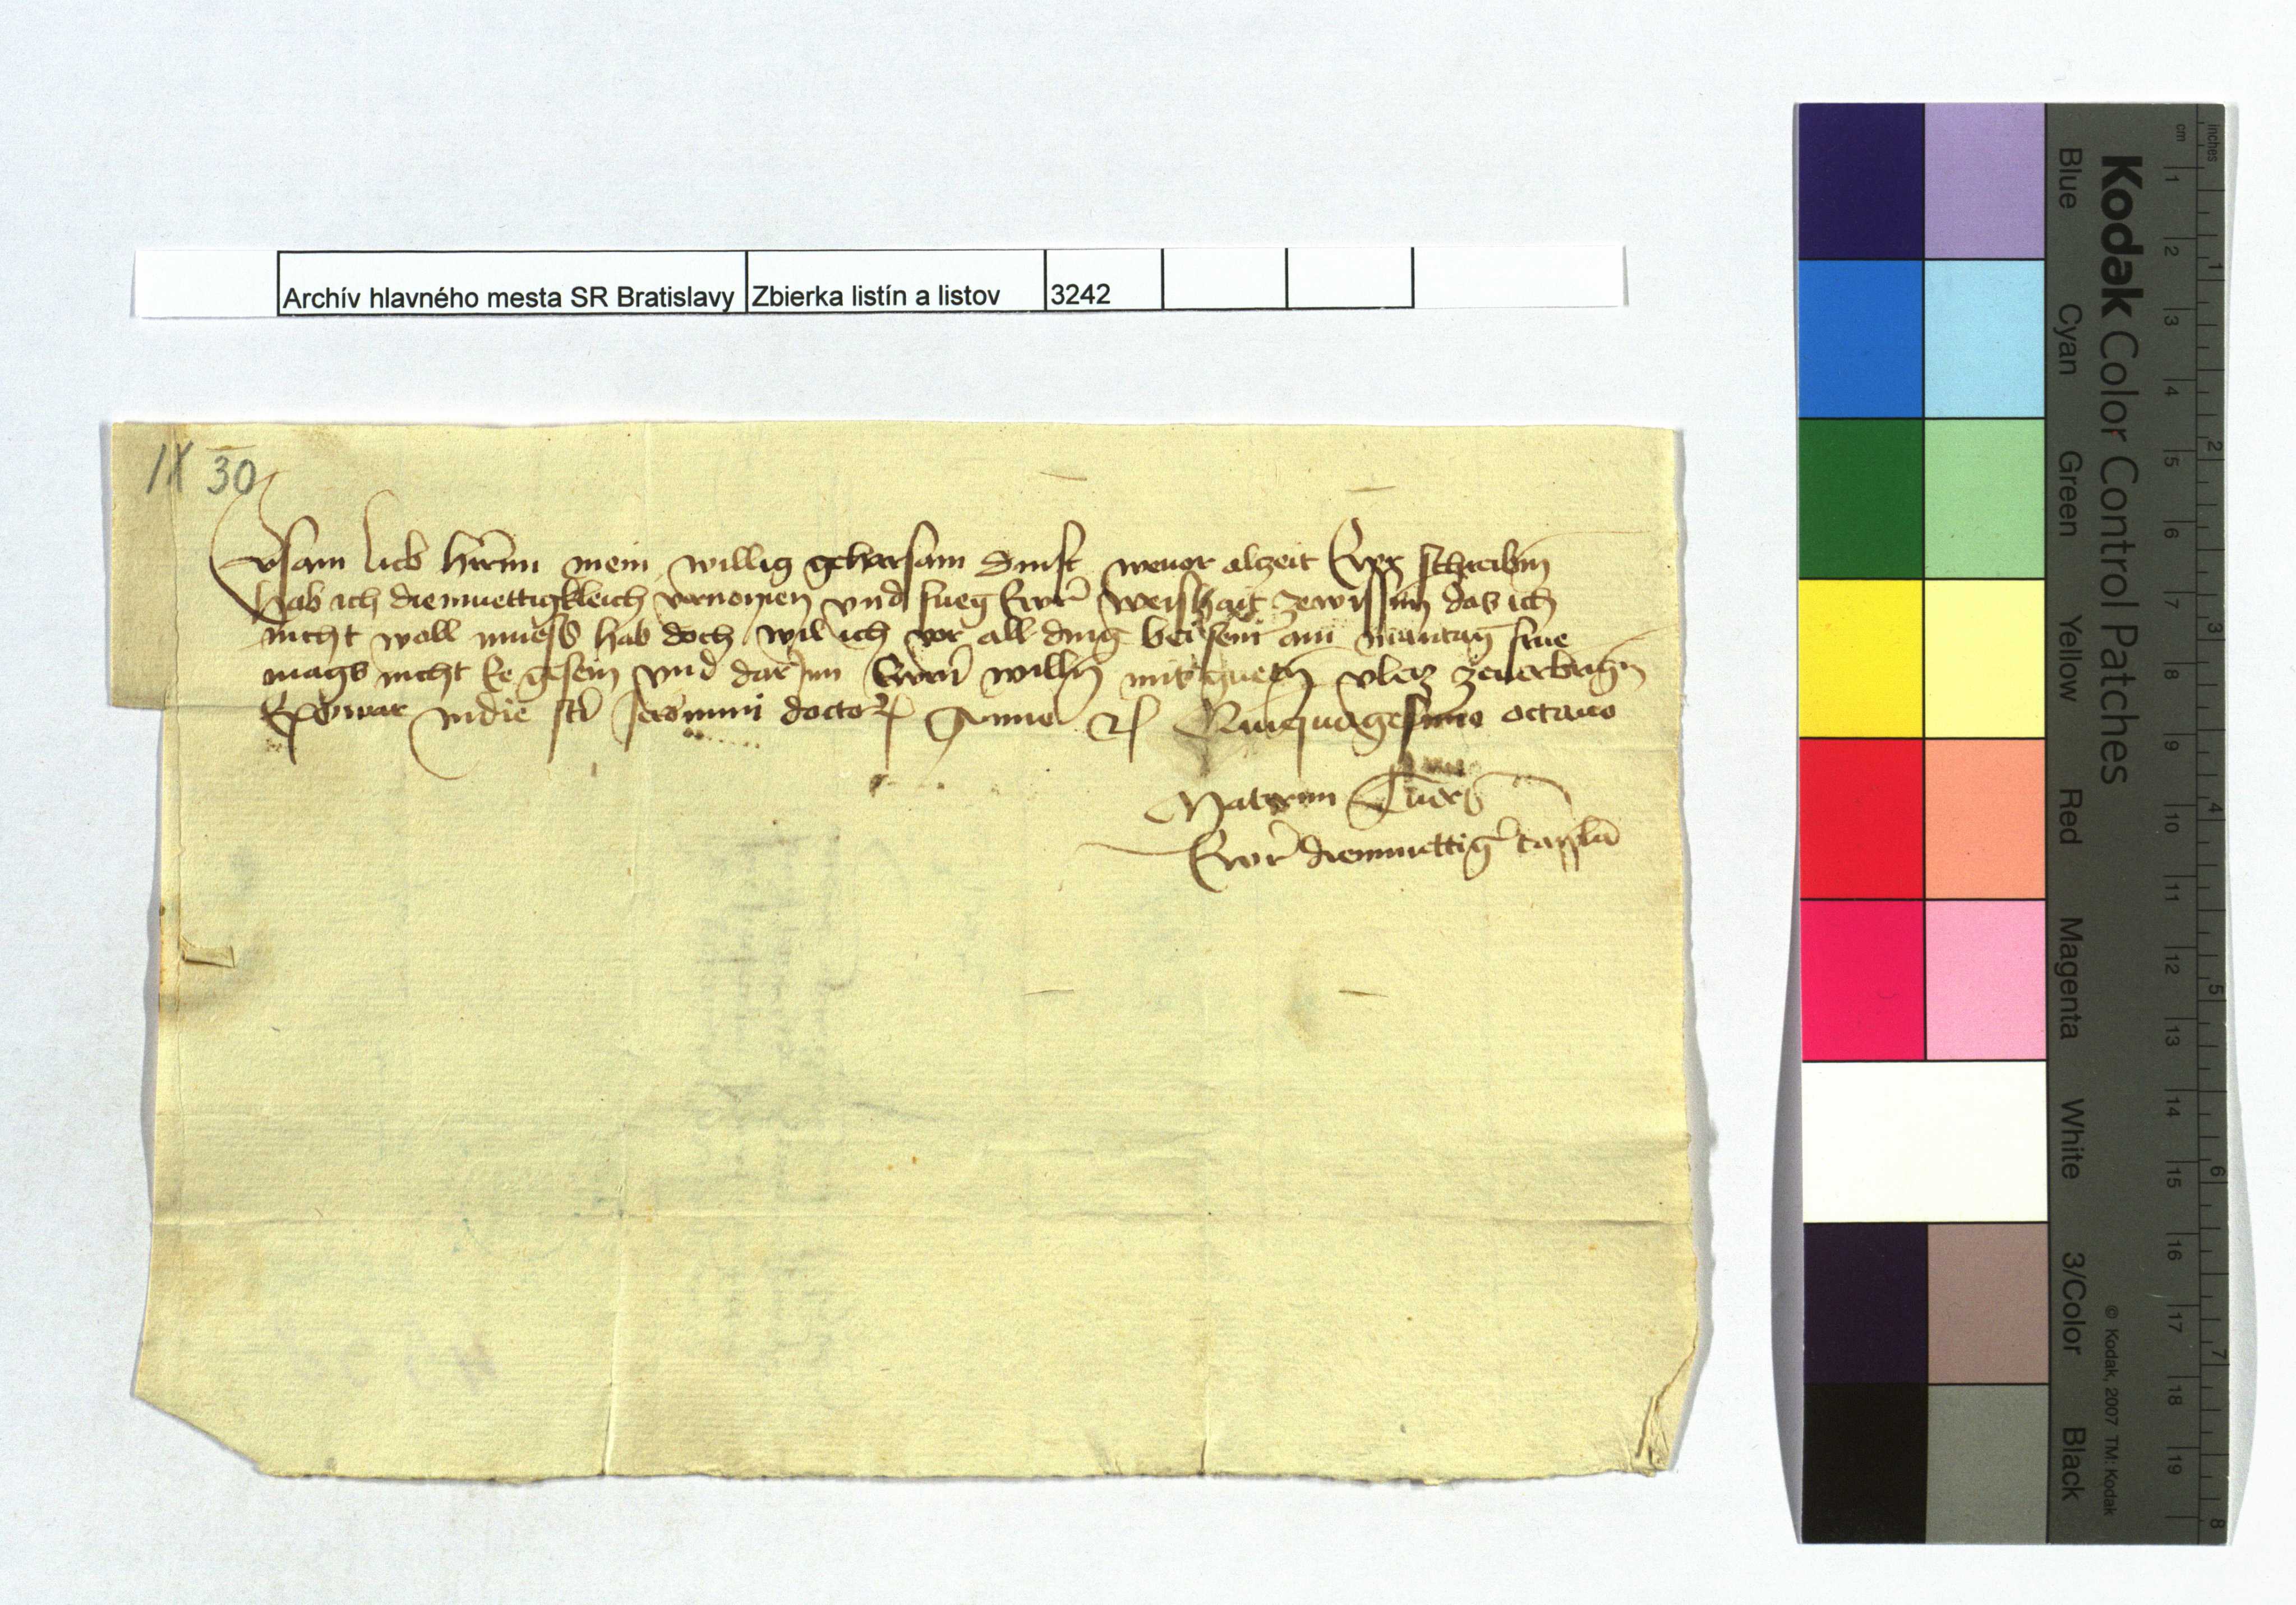 Archív hlavného mesta SR Bratislavy Zbierka listín a listov 3242
IX 30
Ersam lieb herrnn mein willig gehorsam dinst beuor alzeit Ewr schreibn
hab ich diemuettigkleich vernomen vnd fueg Ewr weishait zewissnn das ich
nicht woll muess hab doch wil ich vor all ding bei sein am mantag frue
mags nicht ee gesein vnd darjnn Ewrn willn mit guetn vleis
In die sti Jeronimi doctor Anno Quinquagesimo octauo
Ewr diemuettigr caplan
Kodak Color Control Patches
Blue Cyan Green Yellow Red Magenta White 3/Color Black
© Kodak, 2007 TM: Kodak
cm 1 2 3 4 5 6 7 8 9 10 11 12 13 14 15 16 17 18 19
inches 1 2 3 4 5 6 7 8